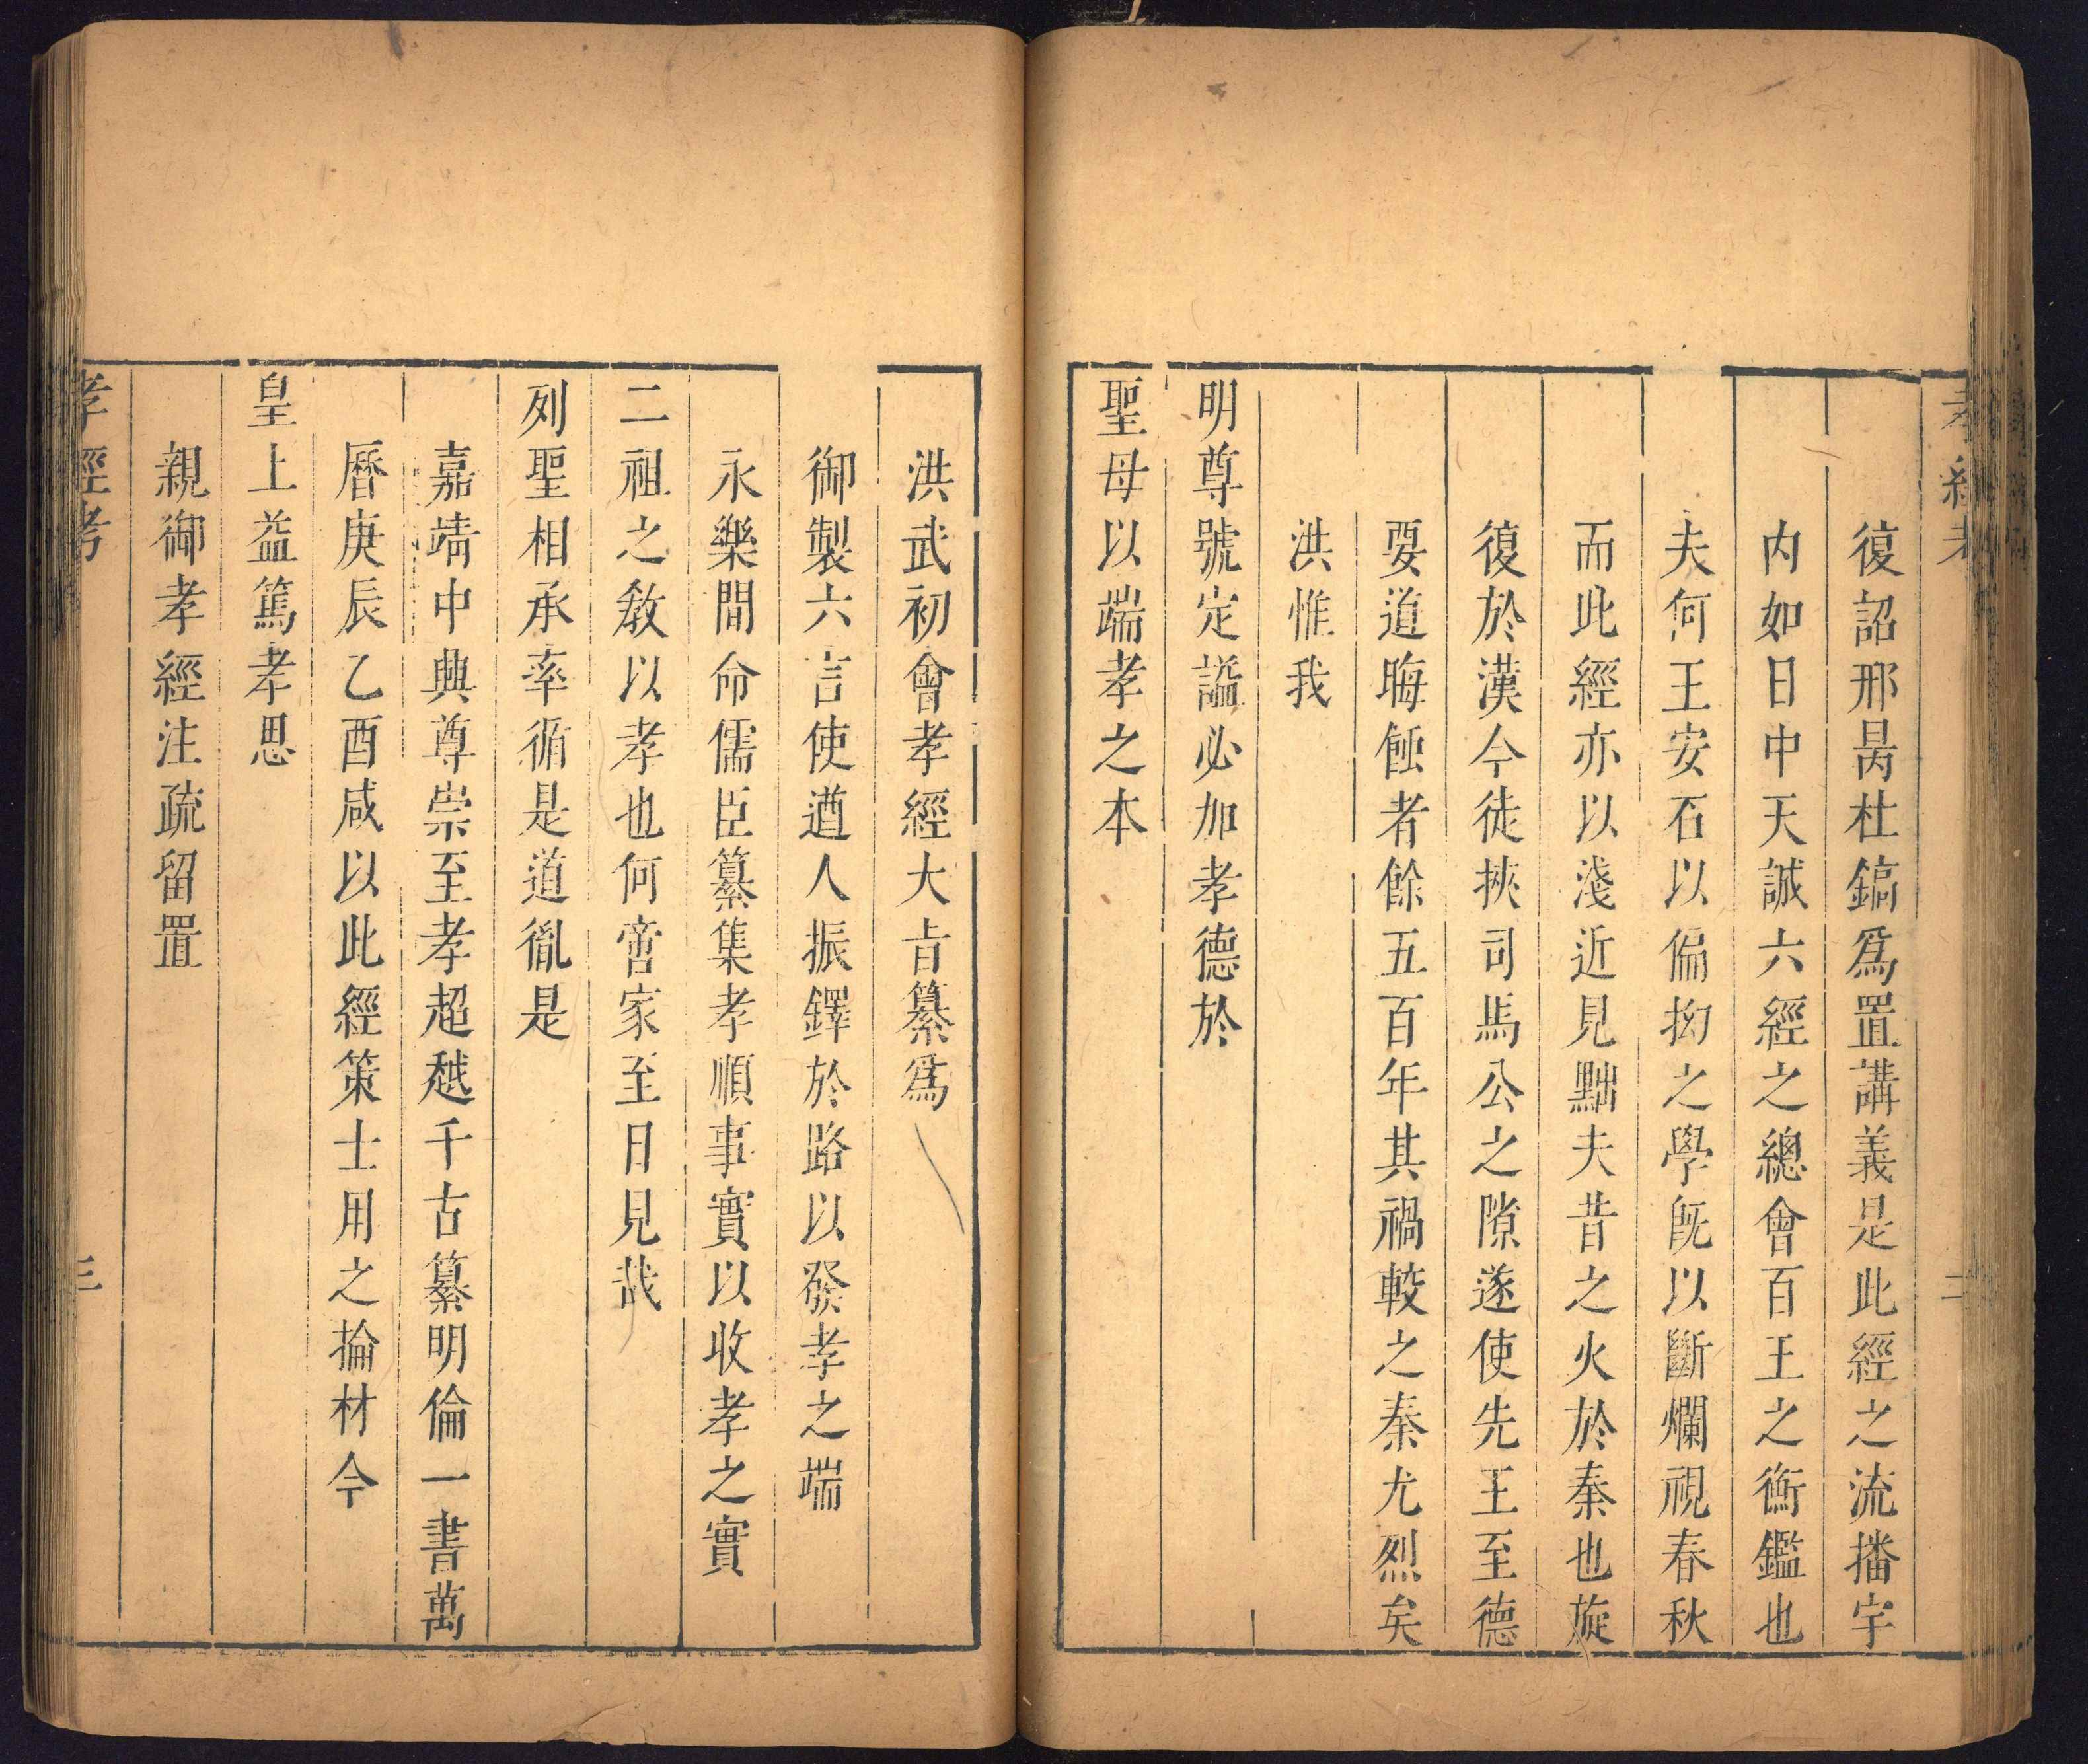 孝經考
二
復詔邢昺杜鎬爲置講義是此經之流播宇
内如日中天誠六經之總會百王之衡鑑也
夫何王安石以偏拗之學旣以斷爛視春秋
而此經亦以淺近見黜夫昔之火於秦也旋
復於漢今徒挾司馬公之隙遂使先王至德
要道晦蝕者餘五百年其禍較之秦尤烈矣
洪惟我
明尊號定謚必加孝德於
聖母以端孝之本
洪武初會孝經大㫖纂爲
御製六言使遒人振鐸於路以發孝之端
永樂間命儒臣纂集孝順事實以收孝之實
二祖之教以孝也何啻家至日見哉
列聖相承率循是道胤是
嘉靖中典尊崇至孝超越千古纂明倫一書萬
曆庚辰乙酉咸以此經策士用之掄材今
皇上益篤孝思
親御孝經注疏留置
孝經考
三